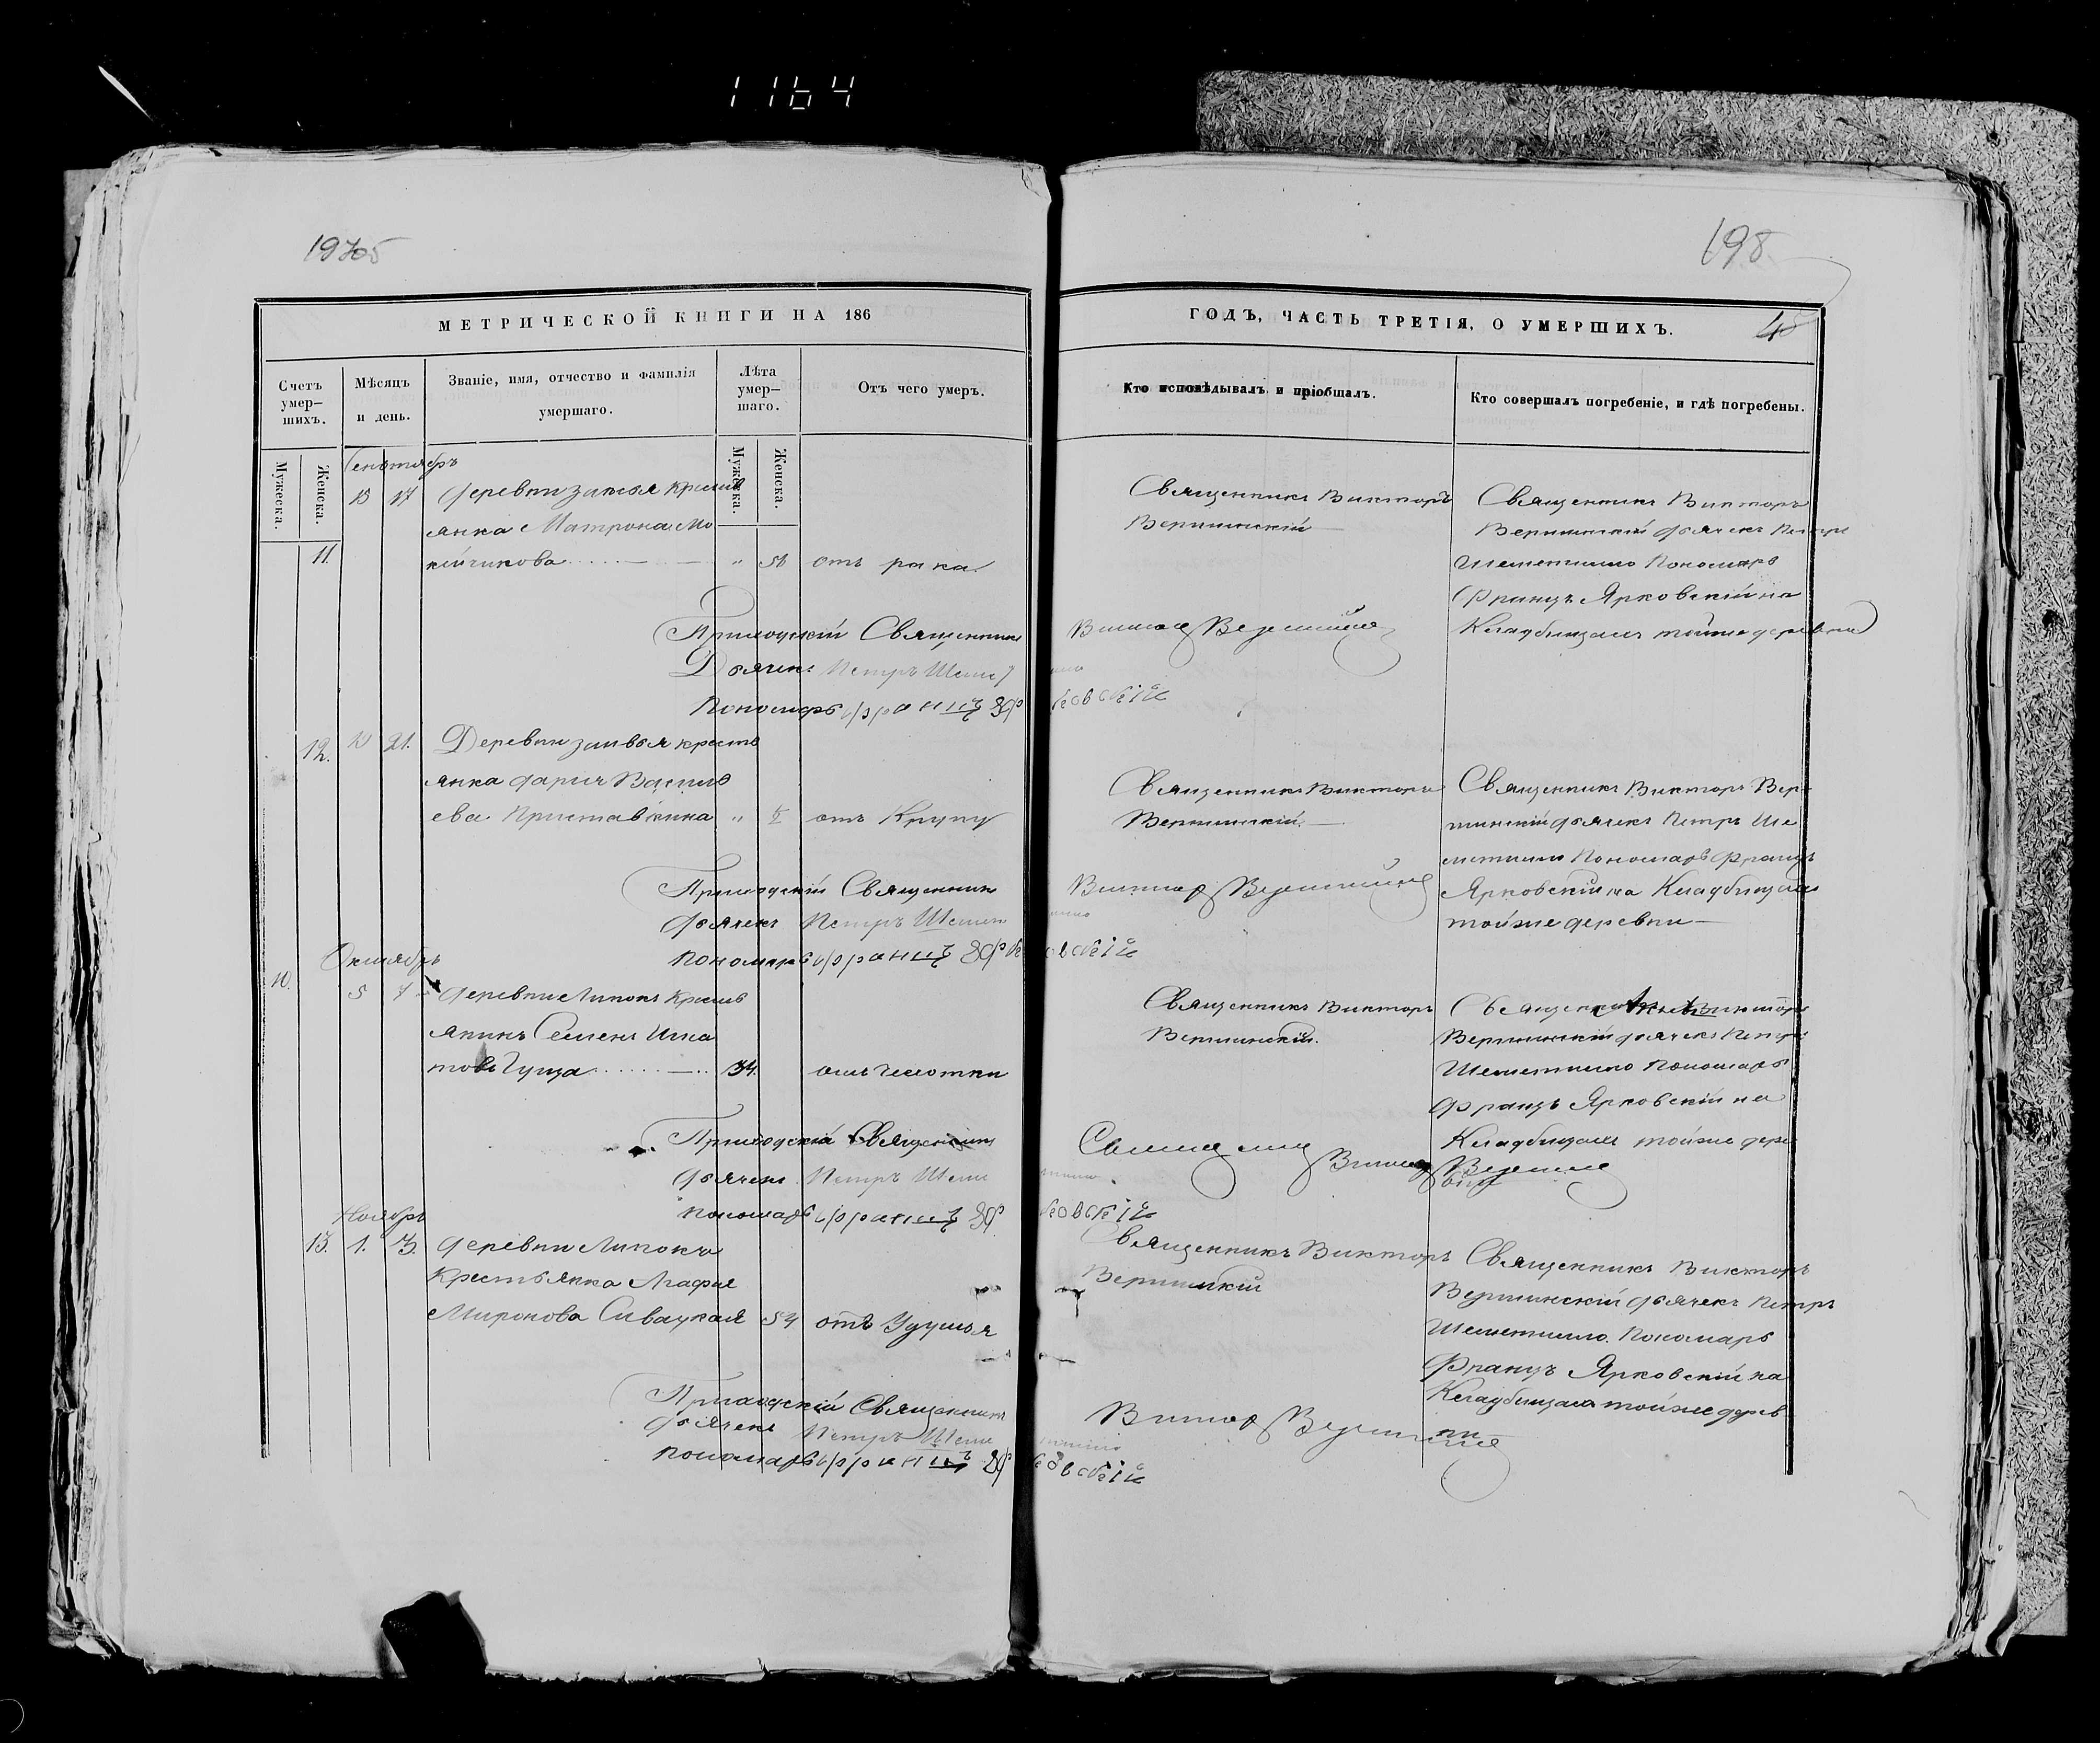 1164
198
МЕТРИЧЕСКОЙ КНИГИ НА 186
ГОДЪ, ЧАСТЬ ТРЕТІЯ, О УМЕРШИХЪ.
Счетъ умер-
шихъ.
Мѣсяцъ
и день.
Званіе, имя, отчество и фамилія
умершаго.
Лѣта
умер-
шаго.
Отъ чего умеръ.
Кто исповѣдывалъ и пріобщалъ.
Кто совершалъ погребеніе, и гдѣ погребены.
Мужеска.
Женска.
Мужеска.
Женска.
Сентябрь
11.
15 17
янка Матрона
отъ рака
Священникъ Викторъ
Вершинскій
Священникъ Викторъ
Вершинскій дьячекъ Петръ
Шеметилло Пономарь
Францъ Ярковскій на
Кладбищахъ тойже деревни
Приходскій Священникъ
Дьячекъ Петръ
Пономарь Францъ
12. 10 21. Деревни крестъ
янка Дарія Василь
ева Приставкина
отъ Крупу
Священникъ Викторъ
Вершинскій.
Священникъ Викторъ Вер-
шинскій дьячекъ Петръ Ше
метилло Пономарь Францъ
Ярковскій на Кладбищахъ
тойже деревни
Приходскій Священникъ
дьячекъ Петръ
пономарь Францъ
Октябрь
10. 5 7 деревни Липокъ Кресть
янинъ Семенъ Игна
товъ Гуща
34.
отъ чахотки
Священникъ Викторъ
Вершинскій.
Священникъ Викторъ
Вершинскій дьячекъ Петръ
Шеметилло Пономарь
Францъ Ярковскій на
Кладбищахъ тойже дере
вни
Приходскій Священникъ
дьячекъ Петръ
пономарь Францъ
Ноябрь
13. 1. 3. деревни Липокъ
Крестьянка Агафія
Миронова Сивацкая 54 отъ Удушья
Священникъ Викторъ
Вершинскій
Священникъ Викторъ
Вершинскій дьячекъ Петръ
Шеметилло Пономарь
Францъ Ярковскій на
Кладбищахъ тойже дерев
ни
Приходскій Священникъ
дьячекъ Петръ
пономарь Францъ